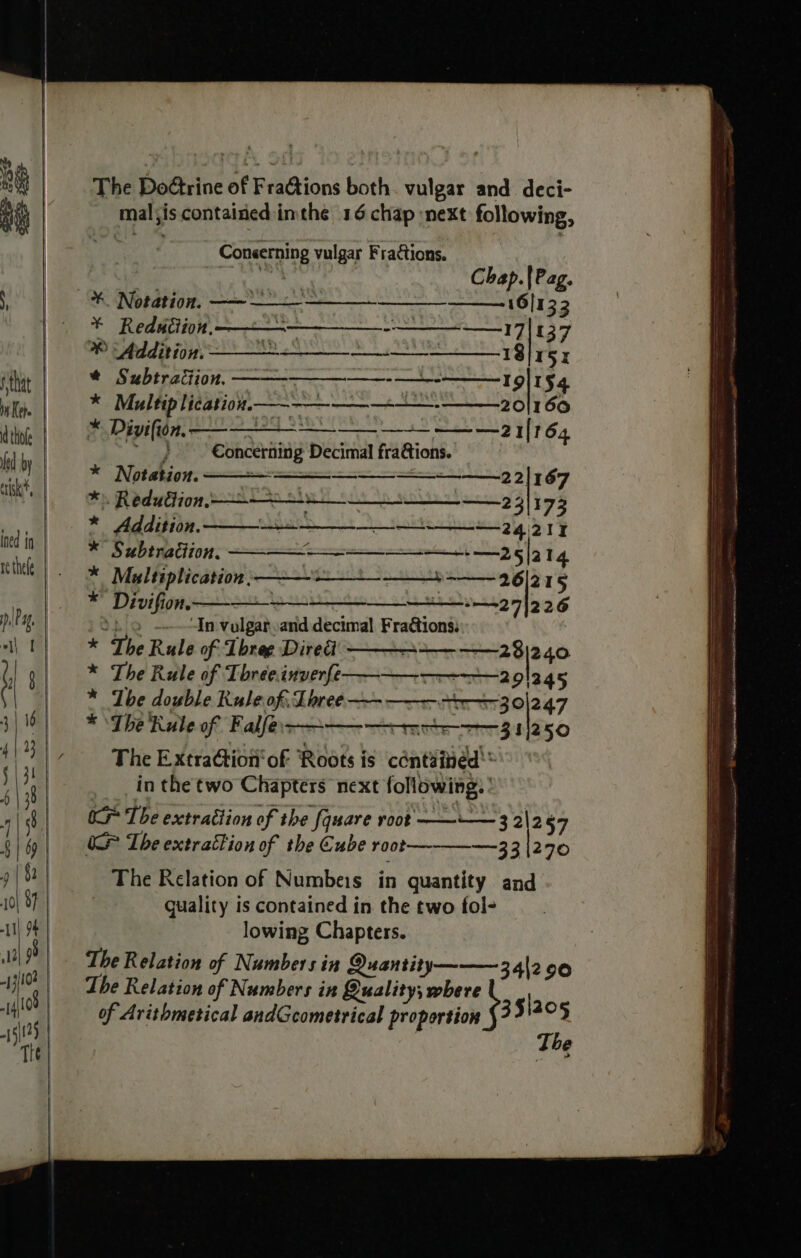 The Doctrine of Fractions both vulgar and deci-
mal, is contained in the 16 chap next following,
Concerning vulgar Fractions.
Chap.|Pag.
* Notation. ——————16|133
* Reduction.——————17|137
* Addition.——————18|151
* Subtraction.——————19|154
* Multiplication.——————20|160
* Division.——————21|164
Concerning Decimal fractions.
* Notation.——————22|167
* Reduction.——————23|173
* Addition.——————24|211
* Subtraction.——————25|214
* Multiplication.——————26|215
* Division.——————27|226
In vulgar and decimal Fractions.
* The Rule of Three Direct——————28|240
* The Rule of Three inverse——————29|245
* The double Rule of Three——————30|247
* The Rule of False——————31|250
The Extraction of Roots is contained
in the two Chapters next following.
☞ The extraction of the square root——————32|257
☞ The extraction of the Cube root——————33|270
The Relation of Numbers in quantity and
quality is contained in the two fol-
lowing Chapters.
The Relation of Numbers in Quantity———34|290
The Relation of Numbers in Quality; where
of Arithmetical and Geometrical proportion } 35|205
The